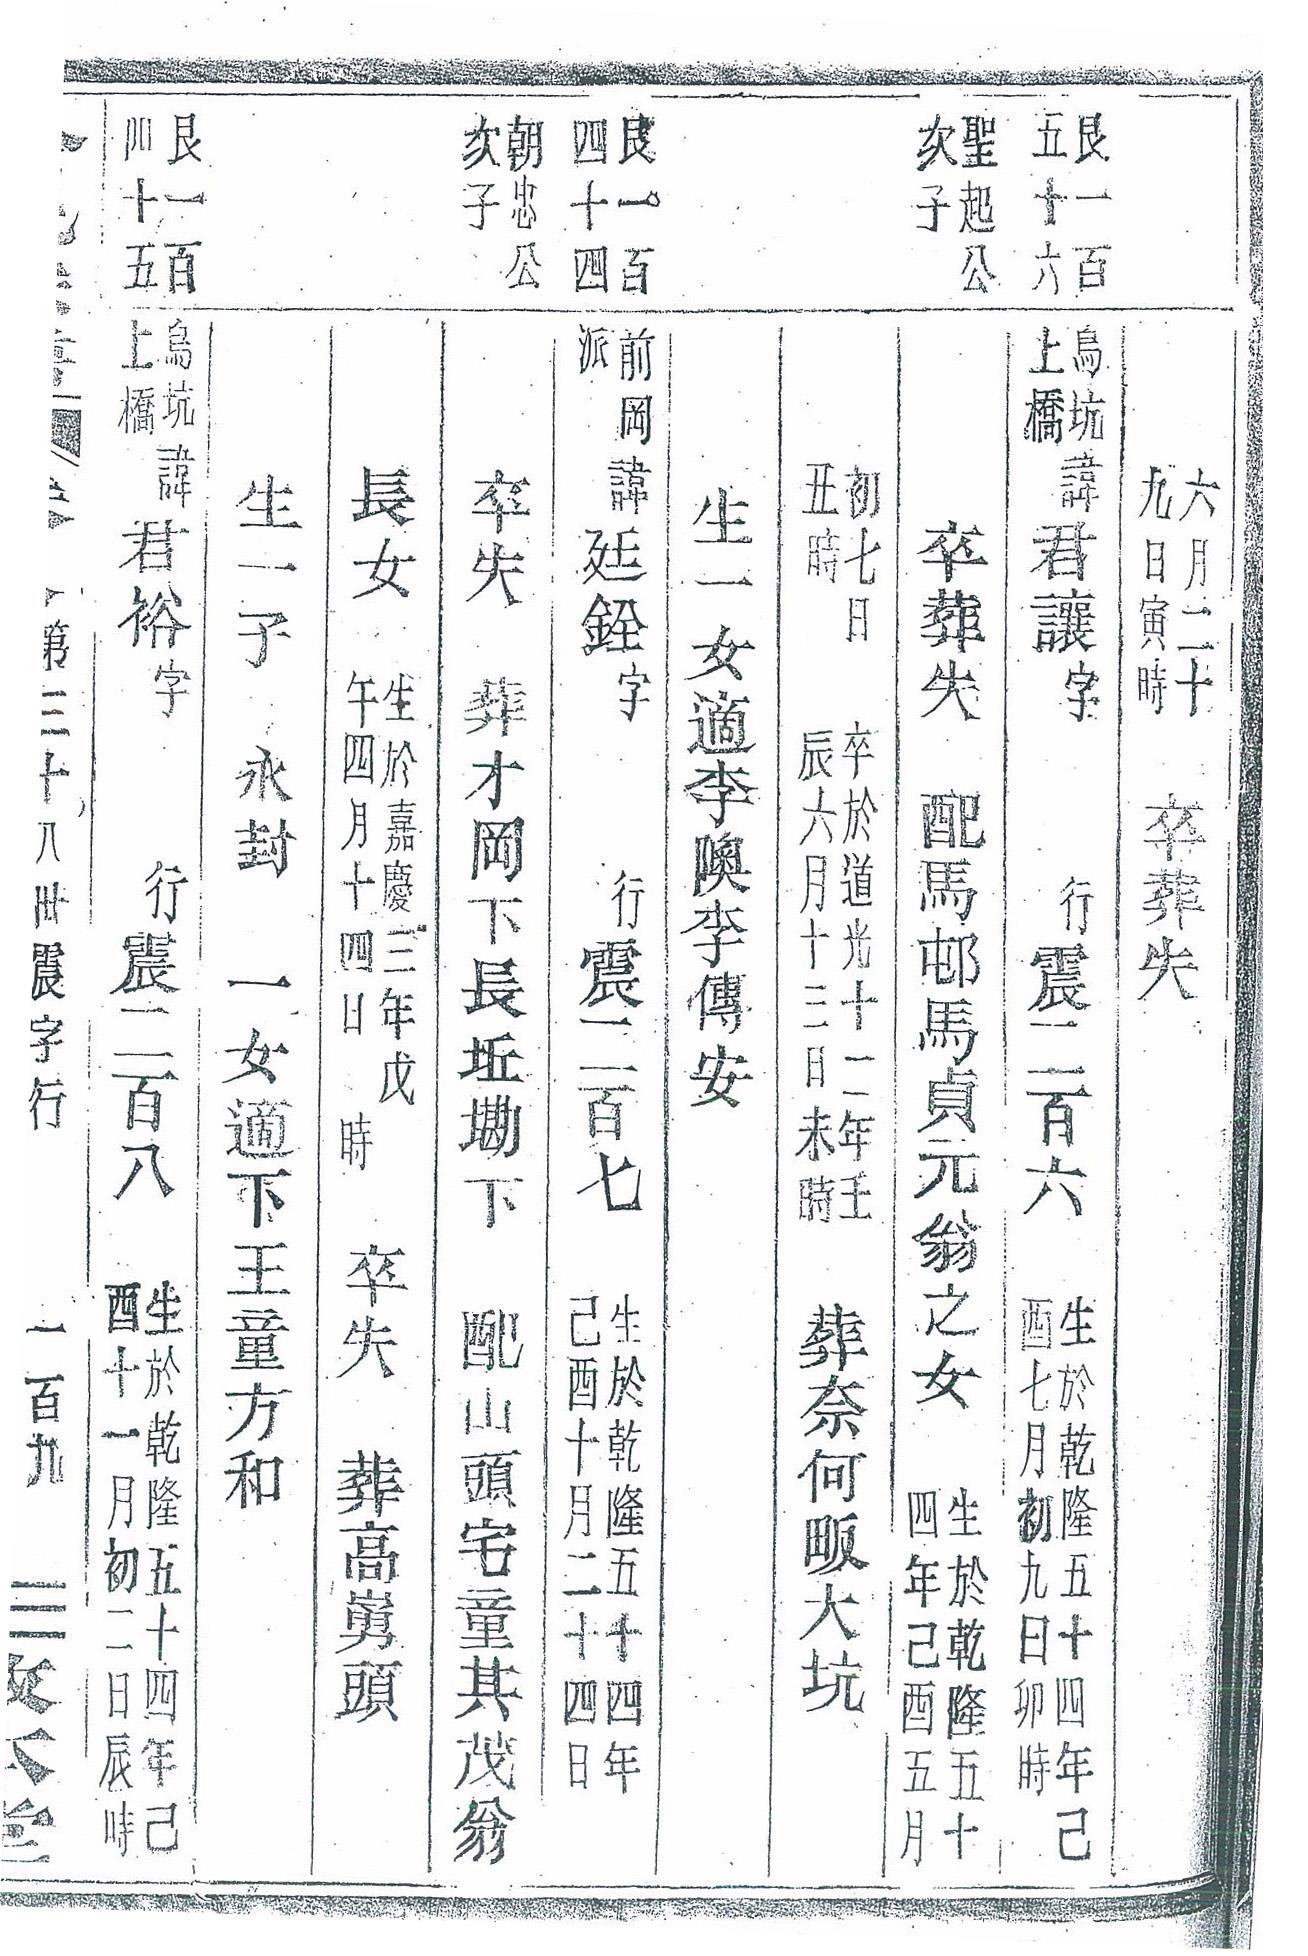 六月二十
九日寅時
卒葬失
艮一百
五十六
烏坑
上橋
諱君讓字
行震二百六
生於乾隆五十四年己
酉七月初九日卯時
聖起公
次子
卒葬失
配馬邨馬貞元翁之女
生於乾隆五十
四年己酉五月
初七日
丑時
卒於道光十二年壬
辰六月十三日未時
葬奈何畈大坑
生一女適李隩李傳安
艮一百
四十四
前岡
派
諱廷銓字
行震二百七
生於乾隆五十四年
己酉十月二十四日
朝忠公
次子
卒失
葬才岡下長坵塪下
配山頭宅童其茂翁
長女
生於嘉慶三年戊
午四月十四日
時
卒失
葬高嶌頭
生一子
永封
一女適下王童方和
艮一百
四十五
烏坑
上橋
諱君裕字
行震二百八
生於乾隆五十四年己
酉十一月初二日辰時
第三十八世震字行
一百九